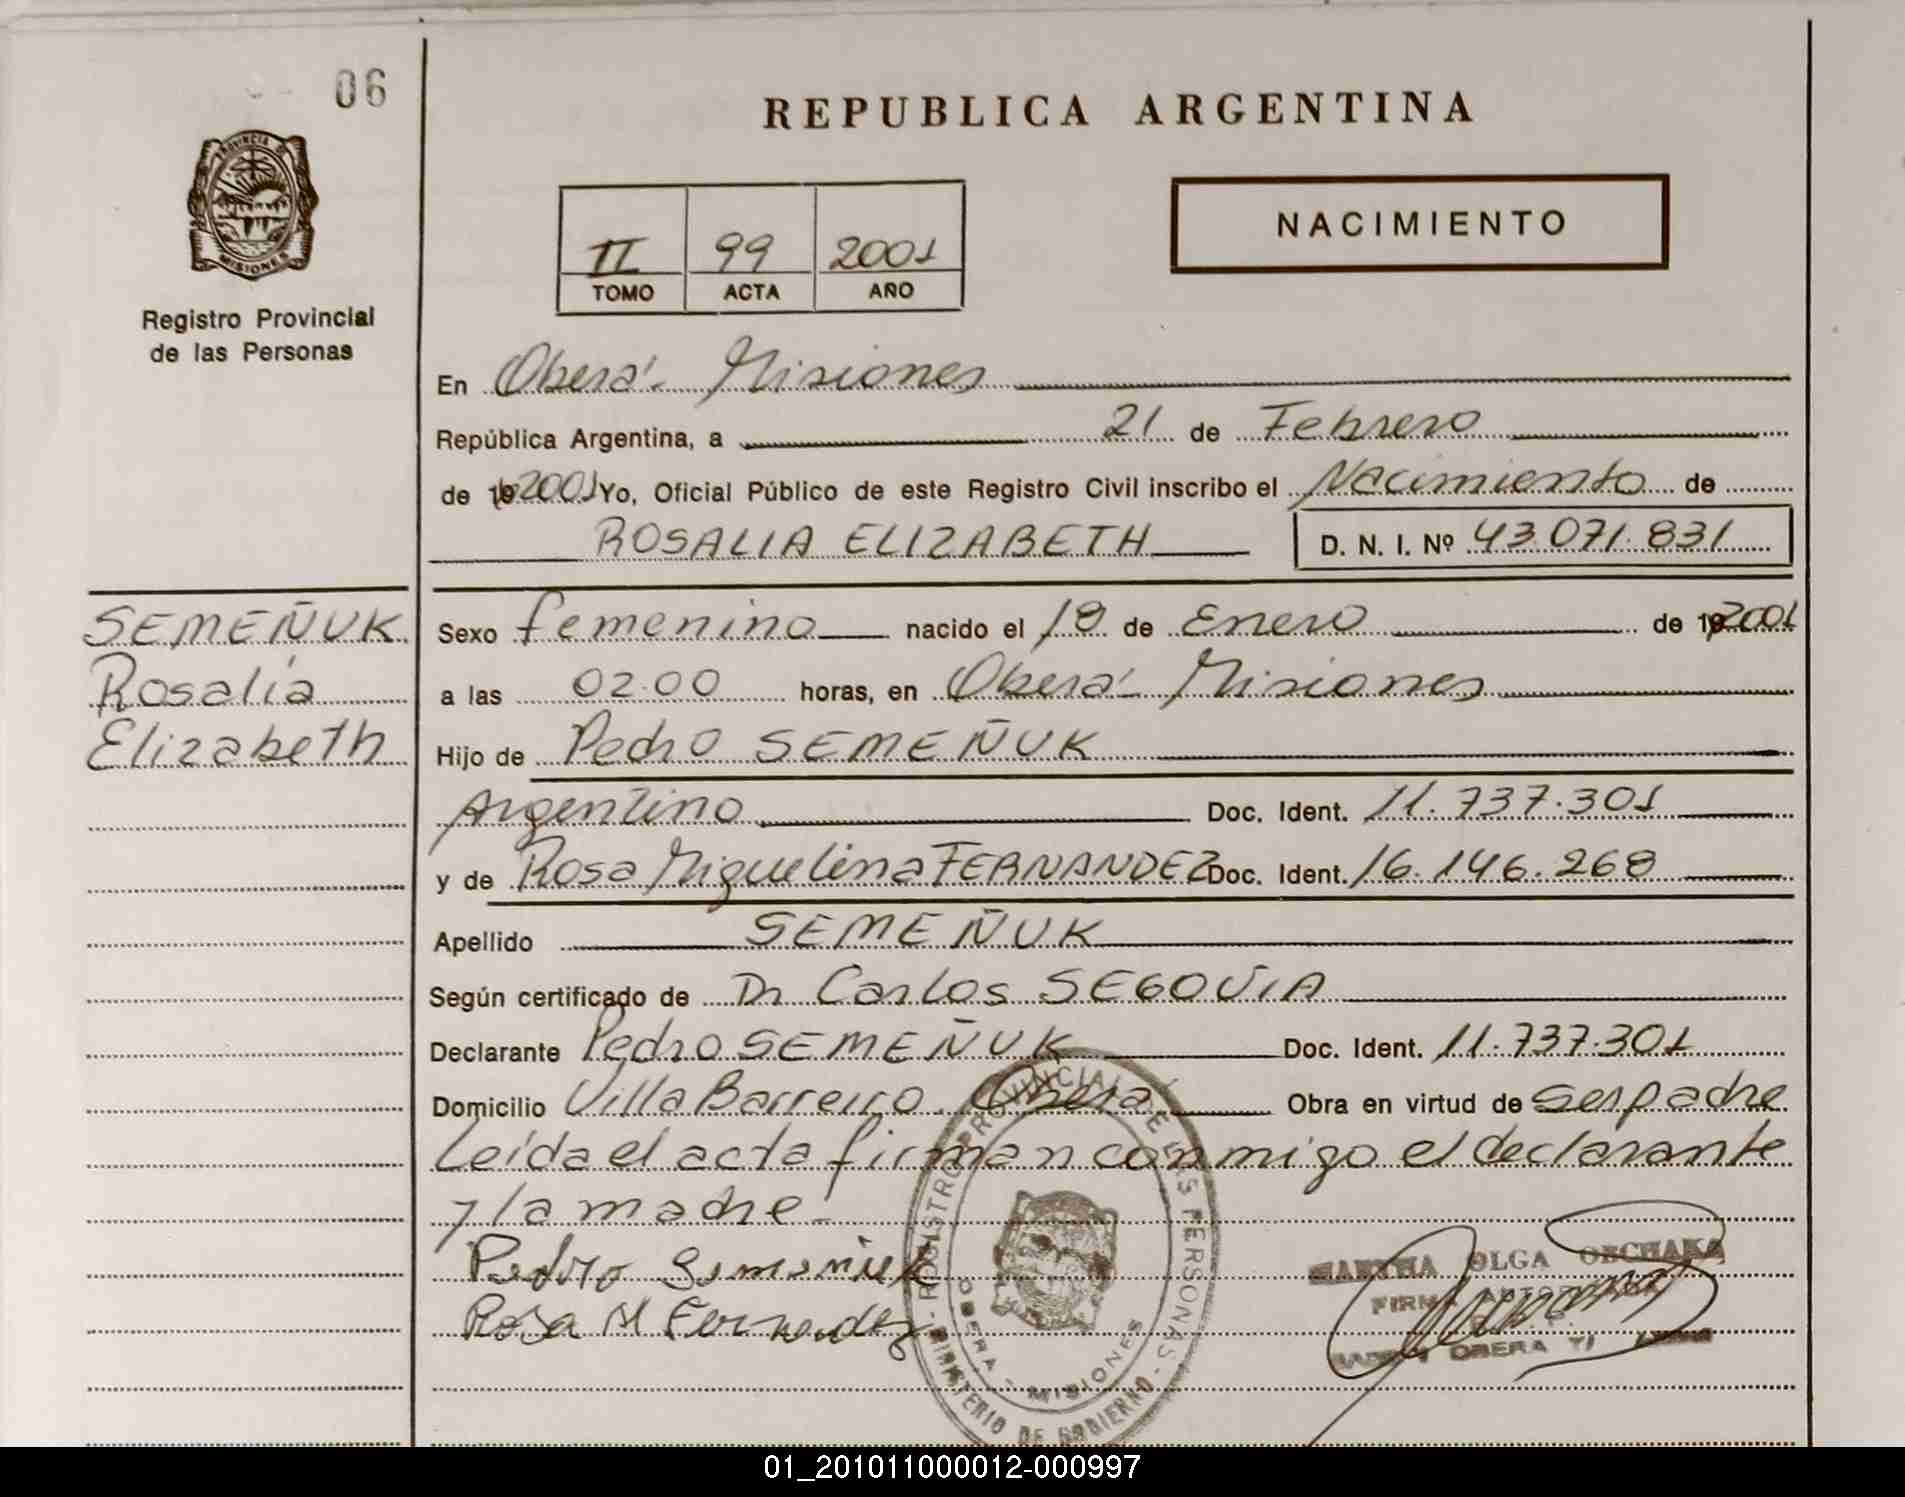 06
PROVINCIA DE
MISIONES
Registro Provincial
de las Personas
REPUBLICA ARGENTINA
II 99 2001
TOMO ACTA AÑO
NACIMIENTO
En Oberá - Misiones
República Argentina, a 21 de Febrero
de 19 2001 Yo, Oficial Público de este Registro Civil inscribo el Nacimiento de
ROSALIA ELIZABETH D. N. I. Nº 43.071.831
SEMEÑUK
Rosalía
Elizabeth
Sexo femenino nacido el 18 de Enero de 19 2001
a las 02.00 horas, en Oberá - Misiones
Hijo de Pedro SEMEÑUK
Argentino Doc. Ident. 11.737.301
y de Rosa Miguelina FERNANDEZ Doc. Ident. 16.146.268
Apellido SEMEÑUK
Según certificado de Dr Carlos SEGOVIA
Declarante Pedro SEMEÑUK Doc. Ident. 11.737.301
Domicilio Villa Barreiro Oberá Obra en virtud de ser padre
Leída el acta firman conmigo el declarante
y la madre -
Pedro Semeniuk
Rosa M Fernandez
REGISTRO PROVINCIAL DE LAS PERSONAS
OBERA - MISIONES
MINISTERIO DE GOBIERNO
MARTHA OLGA OBCHAKA
FIRMA
OBERA
01_201011000012-000997